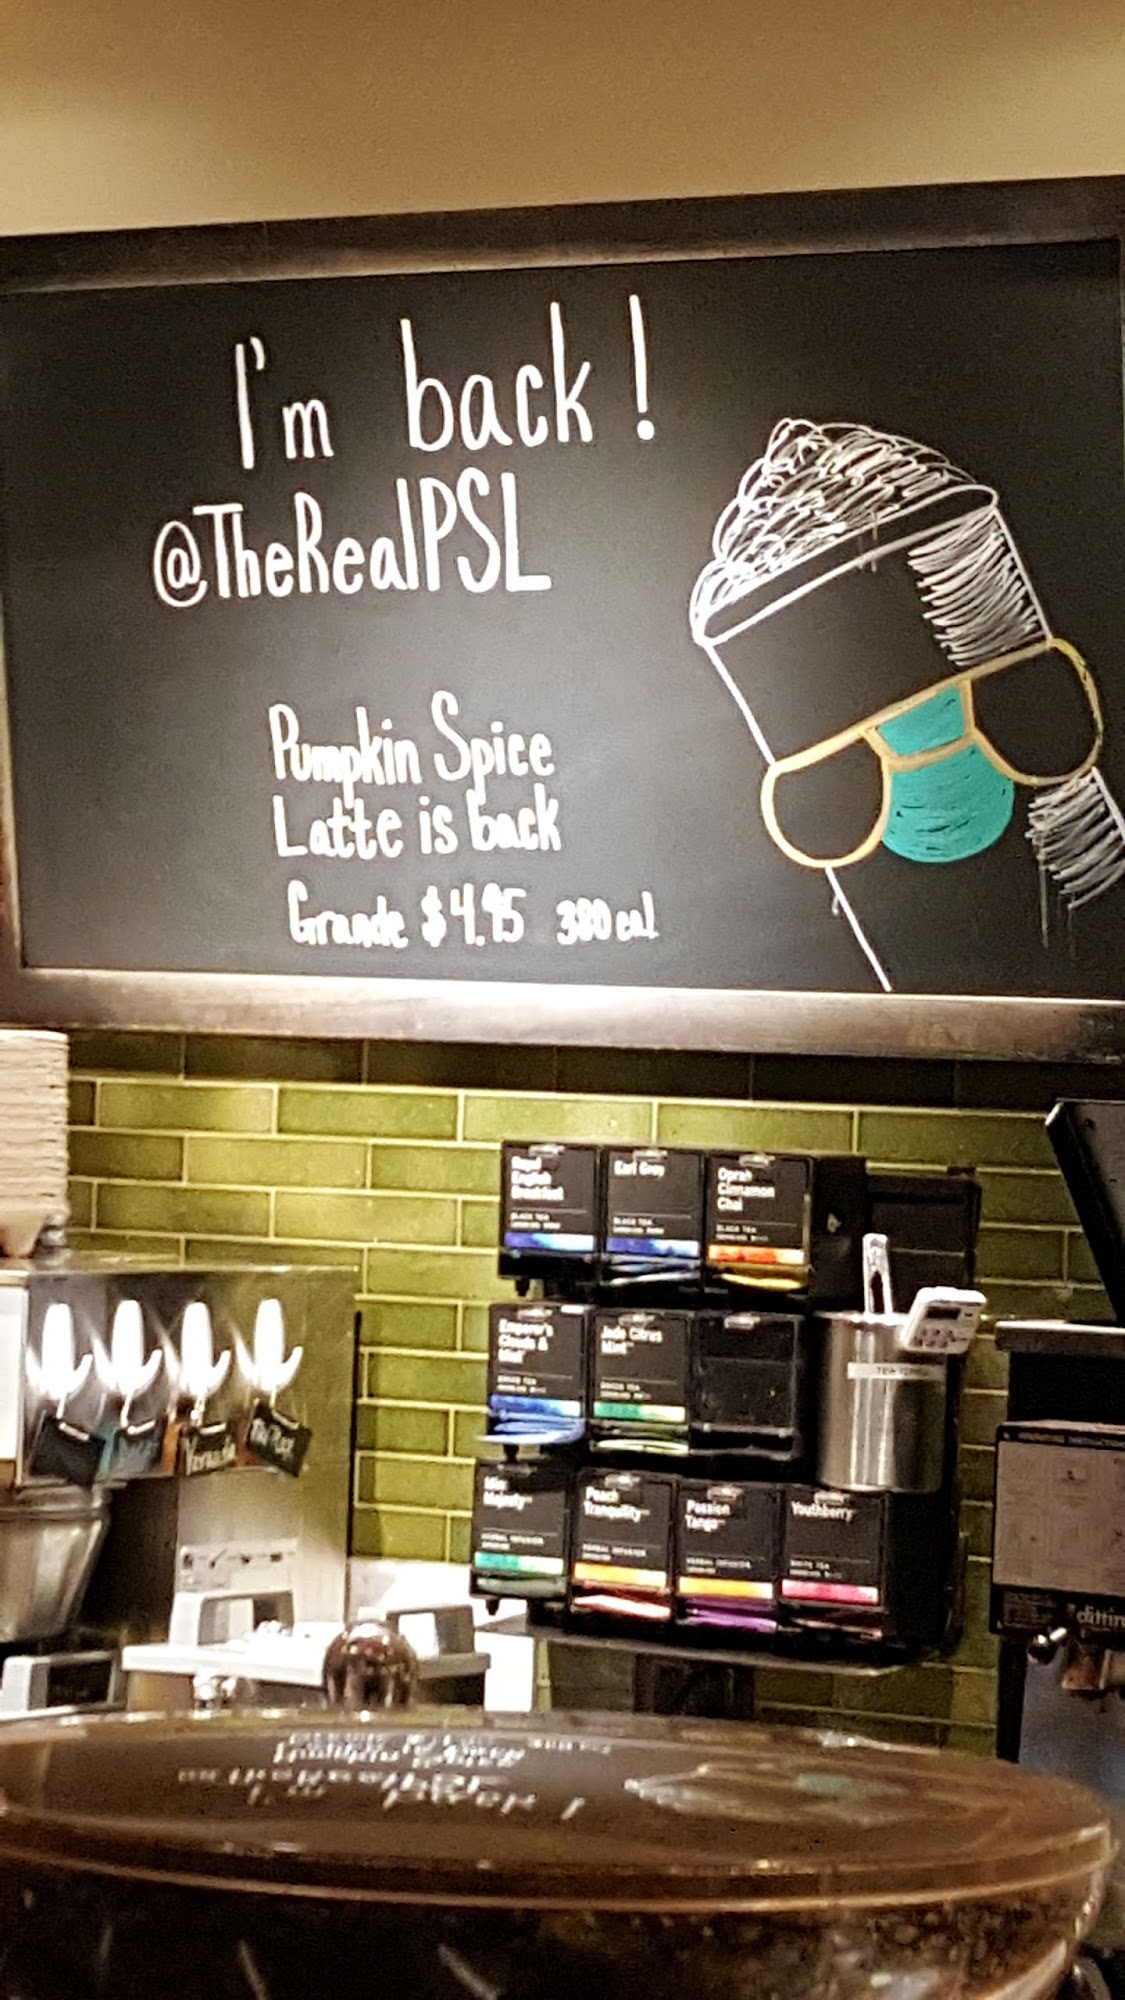 I'm back!
@TheRealPSL
Pumpkin Spice
Latte is back
Grande $4.95 380 cal
Royal
English
Breakfast
BLACK TEA
Earl Grey
BLACK TEA
Oprah
Cinnamon
Chai
BLACK TEA
Emperor's
Clouds &
Mist
GREEN TEA
Jade Citrus
Mint
GREEN TEA
Mint
Majesty
HERBAL INFUSION
Peach
Tranquility
HERBAL INFUSION
Passion
Tango
HERBAL INFUSION
Youthberry
WHITE TEA
Verona